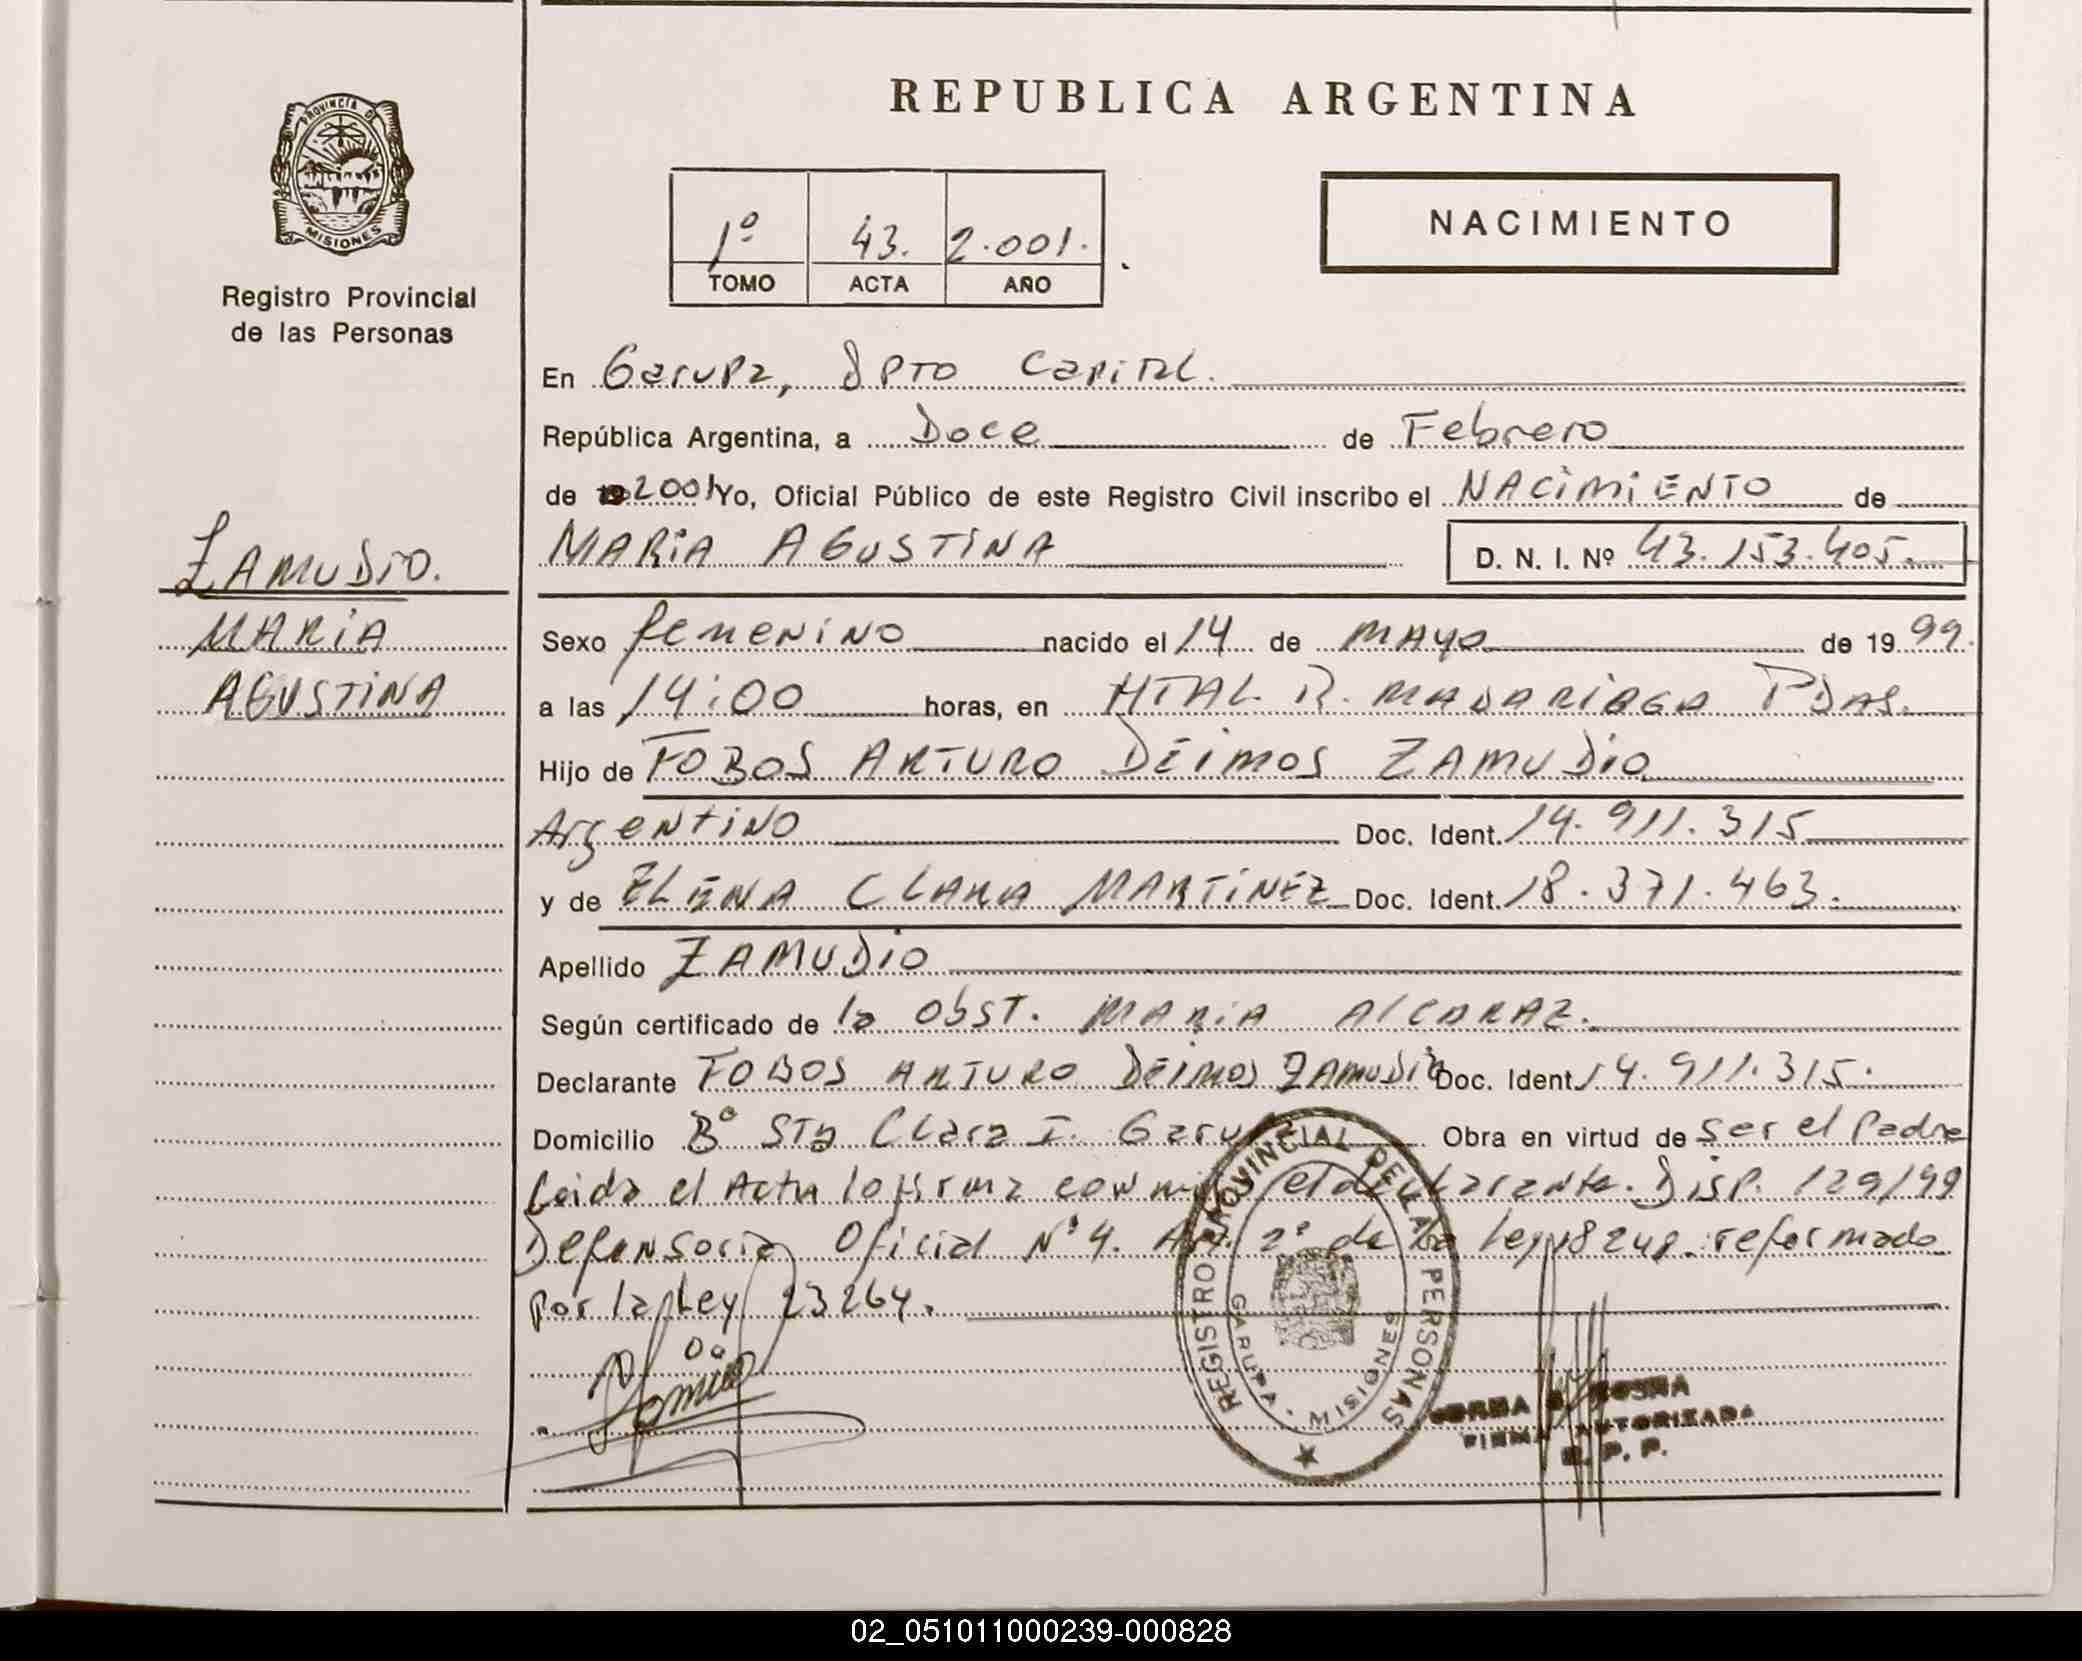 REPUBLICA ARGENTINA
PROVINCIA DE
MISIONES
Registro Provincial
de las Personas
1º 43. 2.001.
TOMO ACTA AÑO
NACIMIENTO
En Garupa, Dpto Capital.
República Argentina, a Doce de Febrero
de 19 2001 Yo, Oficial Público de este Registro Civil inscribo el NACIMIENTO de
MARIA AGUSTINA D. N. I. Nº 43.153.405.
ZAMUDIO.
MARIA
AGUSTINA
Sexo femenino nacido el 14 de mayo de 19 99.
a las 14:00 horas, en HTAL R. MADARIAGA PDAS.
Hijo de FOBOS ARTURO DEIMOS ZAMUDIO
Argentino Doc. Ident. 14.911.315
y de ELENA CLARA MARTINEZ Doc. Ident. 18.371.463.
Apellido ZAMUDIO
Según certificado de la Obst. MARIA AlCARAZ.
Declarante FOBOS ARTURO DEIMOS ZAMUDIO Doc. Ident. 14.911.315.
Domicilio Bº Sta Clara I. Garupa Obra en virtud de ser el Padre
Leida el Acta la firma conmigo el declarante. Disp. 129/99
Defensoria Oficial Nº 4. Art. 2º de la Ley 18248. reformado
por la Ley 23264.
REGISTRO PROVINCIAL DE LAS PERSONAS
GARUPA - MISIONES
FIRMA AUTORIZADA
R. P. P.
02_051011000239-000828